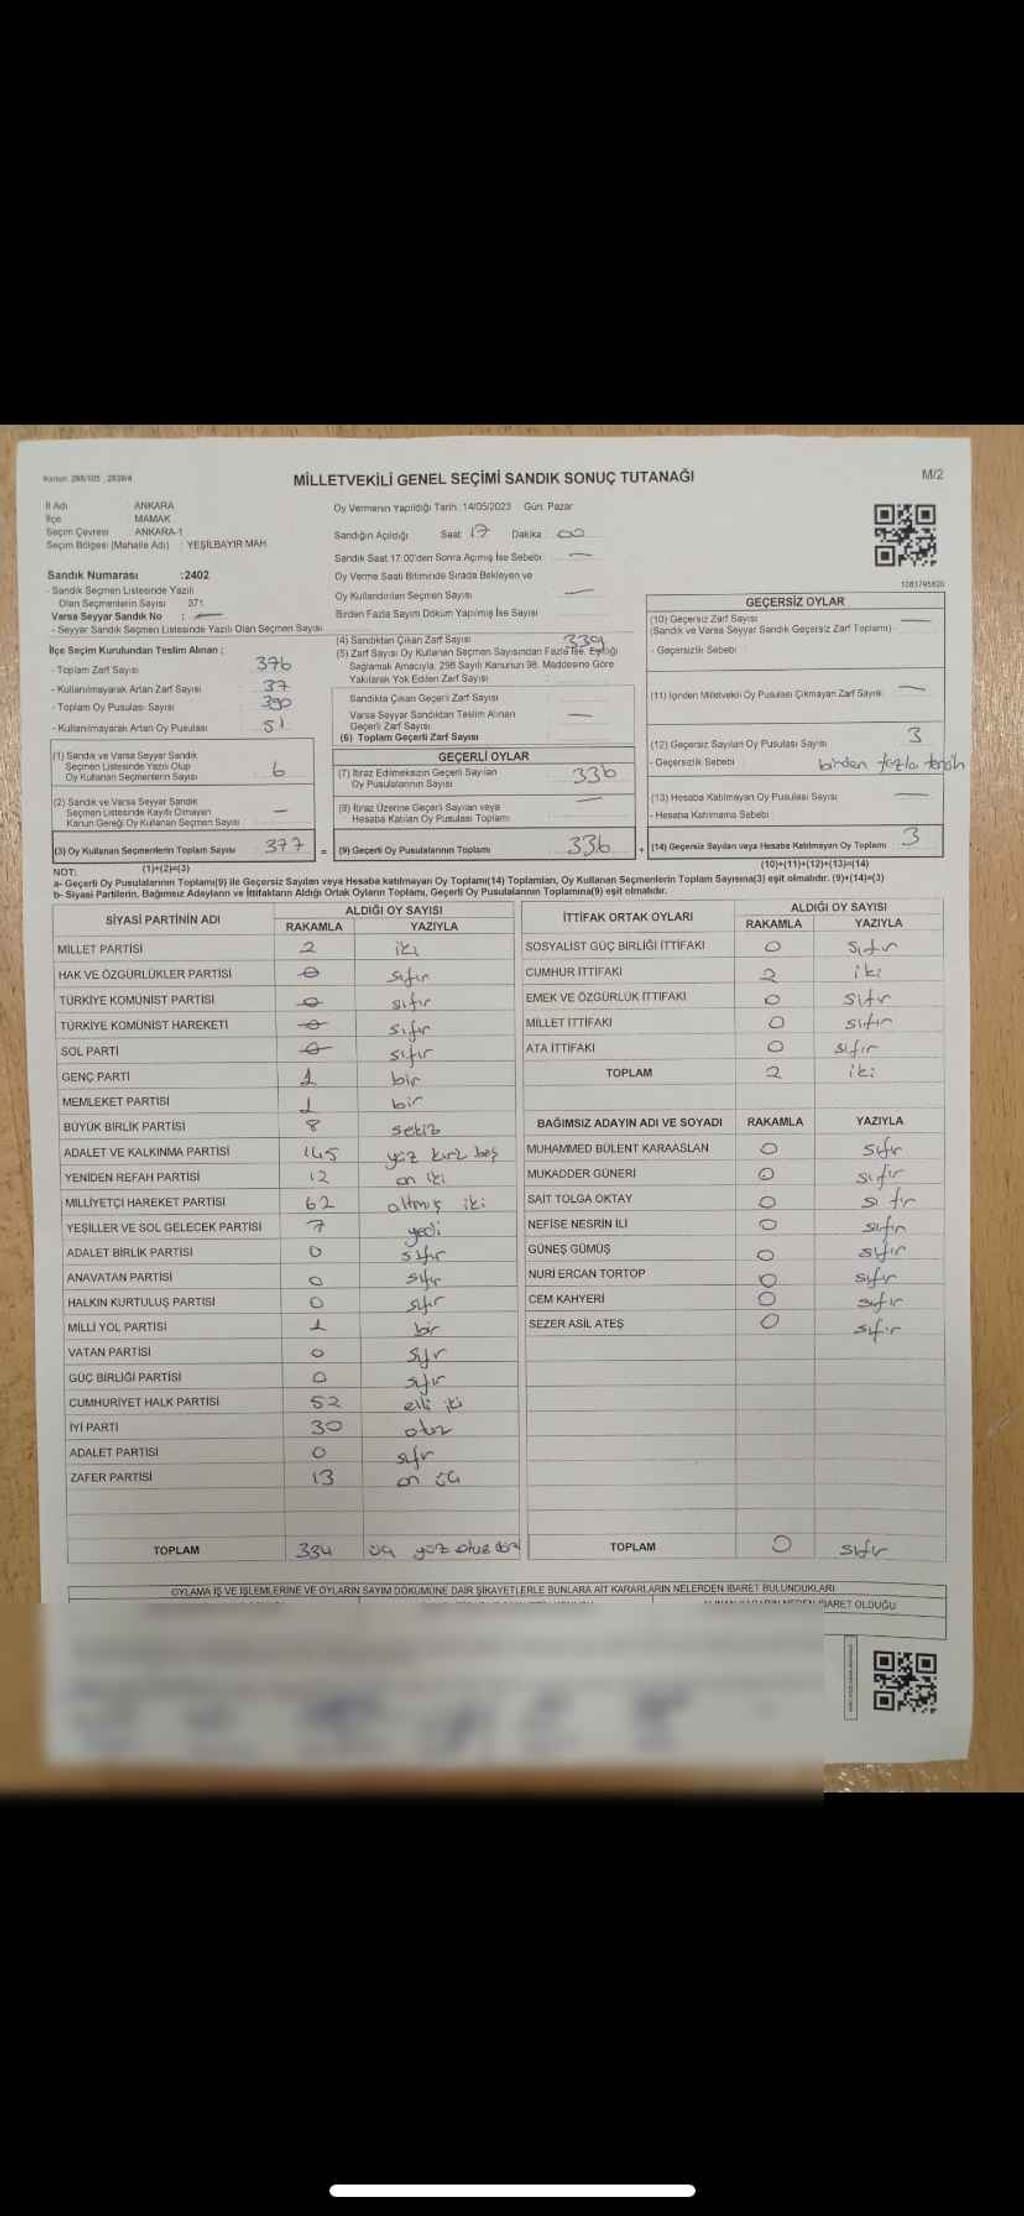 Kanun: 298/105 , 2839/4
MİLLETVEKİLİ GENEL SEÇİMİ SANDIK SONUÇ TUTANAĞI
M/2
İl Adı ANKARA
İlçe MAMAK
Seçim Çevresi ANKARA-1
Seçim Bölgesi (Mahalle Adı) : YEŞİLBAYIR MAH.
Sandık Numarası :2402
- Sandık Seçmen Listesinde Yazılı
Olan Seçmenlerin Sayısı 371
Varsa Seyyar Sandık No : —
- Seyyar Sandık Seçmen Listesinde Yazılı Olan Seçmen Sayısı
İlçe Seçim Kurulundan Teslim Alınan :
- Toplam Zarf Sayısı 376
- Kullanılmayarak Artan Zarf Sayısı 37
- Toplam Oy Pusulası Sayısı 390
- Kullanılmayarak Artan Oy Pusulası 51
(1) Sandık ve Varsa Seyyar Sandık
Seçmen Listesinde Yazılı Olup
Oy Kullanan Seçmenlerin Sayısı 6
(2) Sandık ve Varsa Seyyar Sandık
Seçmen Listesinde Kayıtlı Olmayan
Kanun Gereği Oy Kullanan Seçmen Sayısı —
(3) Oy Kullanan Seçmenlerin Toplam Sayısı 377 =
(1)+(2)=(3)
Oy Vermenin Yapıldığı Tarih: 14/05/2023 Gün: Pazar
Sandığın Açıldığı Saat 17 Dakika 00
Sandık Saat 17:00'den Sonra Açılmış İse Sebebi —
Oy Verme Saati Bitiminde Sırada Bekleyen ve
Oy Kullandırılan Seçmen Sayısı —
Birden Fazla Sayım Döküm Yapılmış İse Sayısı
(4) Sandıktan Çıkan Zarf Sayısı 339
(5) Zarf Sayısı Oy Kullanan Seçmen Sayısından Fazla İse, Eşitliği
Sağlamak Amacıyla, 298 Sayılı Kanunun 98. Maddesine Göre
Yakılarak Yok Edilen Zarf Sayısı
Sandıkta Çıkan Geçerli Zarf Sayısı
Varsa Seyyar Sandıktan Teslim Alınan
Geçerli Zarf Sayısı —
(6) Toplam Geçerli Zarf Sayısı
GEÇERLİ OYLAR
(7) İtiraz Edilmeksizin Geçerli Sayılan
Oy Pusulalarının Sayısı 336
(8) İtiraz Üzerine Geçerli Sayılan veya
Hesaba Katılan Oy Pusulası Toplamı —
(9) Geçerli Oy Pusulalarının Toplamı 336 +
1283795820
GEÇERSİZ OYLAR
(10) Geçersiz Zarf Sayısı
(Sandık ve Varsa Seyyar Sandık Geçersiz Zarf Toplamı) —
- Geçersizlik Sebebi
(11) İçinden Milletvekili Oy Pusulası Çıkmayan Zarf Sayısı —
(12) Geçersiz Sayılan Oy Pusulası Sayısı 3
- Geçersizlik Sebebi birden fazla tercih
(13) Hesaba Katılmayan Oy Pusulası Sayısı —
- Hesaba Katılmama Sebebi
(14) Geçersiz Sayılan veya Hesaba Katılmayan Oy Toplamı 3
(10)+(11)+(12)+(13)=(14)
NOT:
a- Geçerli Oy Pusulalarının Toplamı(9) ile Geçersiz Sayılan veya Hesaba katılmayan Oy Toplamı(14) Toplamları, Oy Kullanan Seçmenlerin Toplam Sayısına(3) eşit olmalıdır. (9)+(14)=(3)
b- Siyasi Partilerin, Bağımsız Adayların ve İttifakların Aldığı Ortak Oyların Toplamı, Geçerli Oy Pusulalarının Toplamına(9) eşit olmalıdır.
SİYASİ PARTİNİN ADI ALDIĞI OY SAYISI
RAKAMLA YAZIYLA
MİLLET PARTİSİ 2 iki
HAK VE ÖZGÜRLÜKLER PARTİSİ 0 sıfır
TÜRKİYE KOMÜNİST PARTİSİ 0 sıfır
TÜRKİYE KOMÜNİST HAREKETİ 0 sıfır
SOL PARTİ 0 sıfır
GENÇ PARTİ 1 bir
MEMLEKET PARTİSİ 1 bir
BÜYÜK BİRLİK PARTİSİ 8 sekiz
ADALET VE KALKINMA PARTİSİ 145 yüz kırk beş
YENİDEN REFAH PARTİSİ 12 on iki
MİLLİYETÇİ HAREKET PARTİSİ 62 altmış iki
YEŞİLLER VE SOL GELECEK PARTİSİ 7 yedi
ADALET BİRLİK PARTİSİ 0 sıfır
ANAVATAN PARTİSİ 0 sıfır
HALKIN KURTULUŞ PARTİSİ 0 sıfır
MİLLİ YOL PARTİSİ 1 bir
VATAN PARTİSİ 0 sıfır
GÜÇ BİRLİĞİ PARTİSİ 0 sıfır
CUMHURİYET HALK PARTİSİ 52 elli iki
İYİ PARTİ 30 otuz
ADALET PARTİSİ 0 sıfır
ZAFER PARTİSİ 13 on üç
TOPLAM 334 üç yüz otuz dört
İTTİFAK ORTAK OYLARI ALDIĞI OY SAYISI
RAKAMLA YAZIYLA
SOSYALİST GÜÇ BİRLİĞİ İTTİFAKI 0 sıfır
CUMHUR İTTİFAKI 2 iki
EMEK VE ÖZGÜRLÜK İTTİFAKI 0 sıfır
MİLLET İTTİFAKI 0 sıfır
ATA İTTİFAKI 0 sıfır
TOPLAM 2 iki
BAĞIMSIZ ADAYIN ADI VE SOYADI RAKAMLA YAZIYLA
MUHAMMED BÜLENT KARAASLAN 0 sıfır
MUKADDER GÜNERİ 0 sıfır
SAİT TOLGA OKTAY 0 sıfır
NEFİSE NESRİN İLİ 0 sıfır
GÜNEŞ GÜMÜŞ 0 sıfır
NURİ ERCAN TORTOP 0 sıfır
CEM KAHYERİ 0 sıfır
SEZER ASİL ATEŞ 0 sıfır
TOPLAM 0 sıfır
OYLAMA İŞ VE İŞLEMLERİNE VE OYLARIN SAYIM DÖKÜMÜNE DAİR ŞİKAYETLERLE BUNLARA AİT KARARLARIN NELERDEN İBARET BULUNDUKLARI
İBARET OLDUĞU